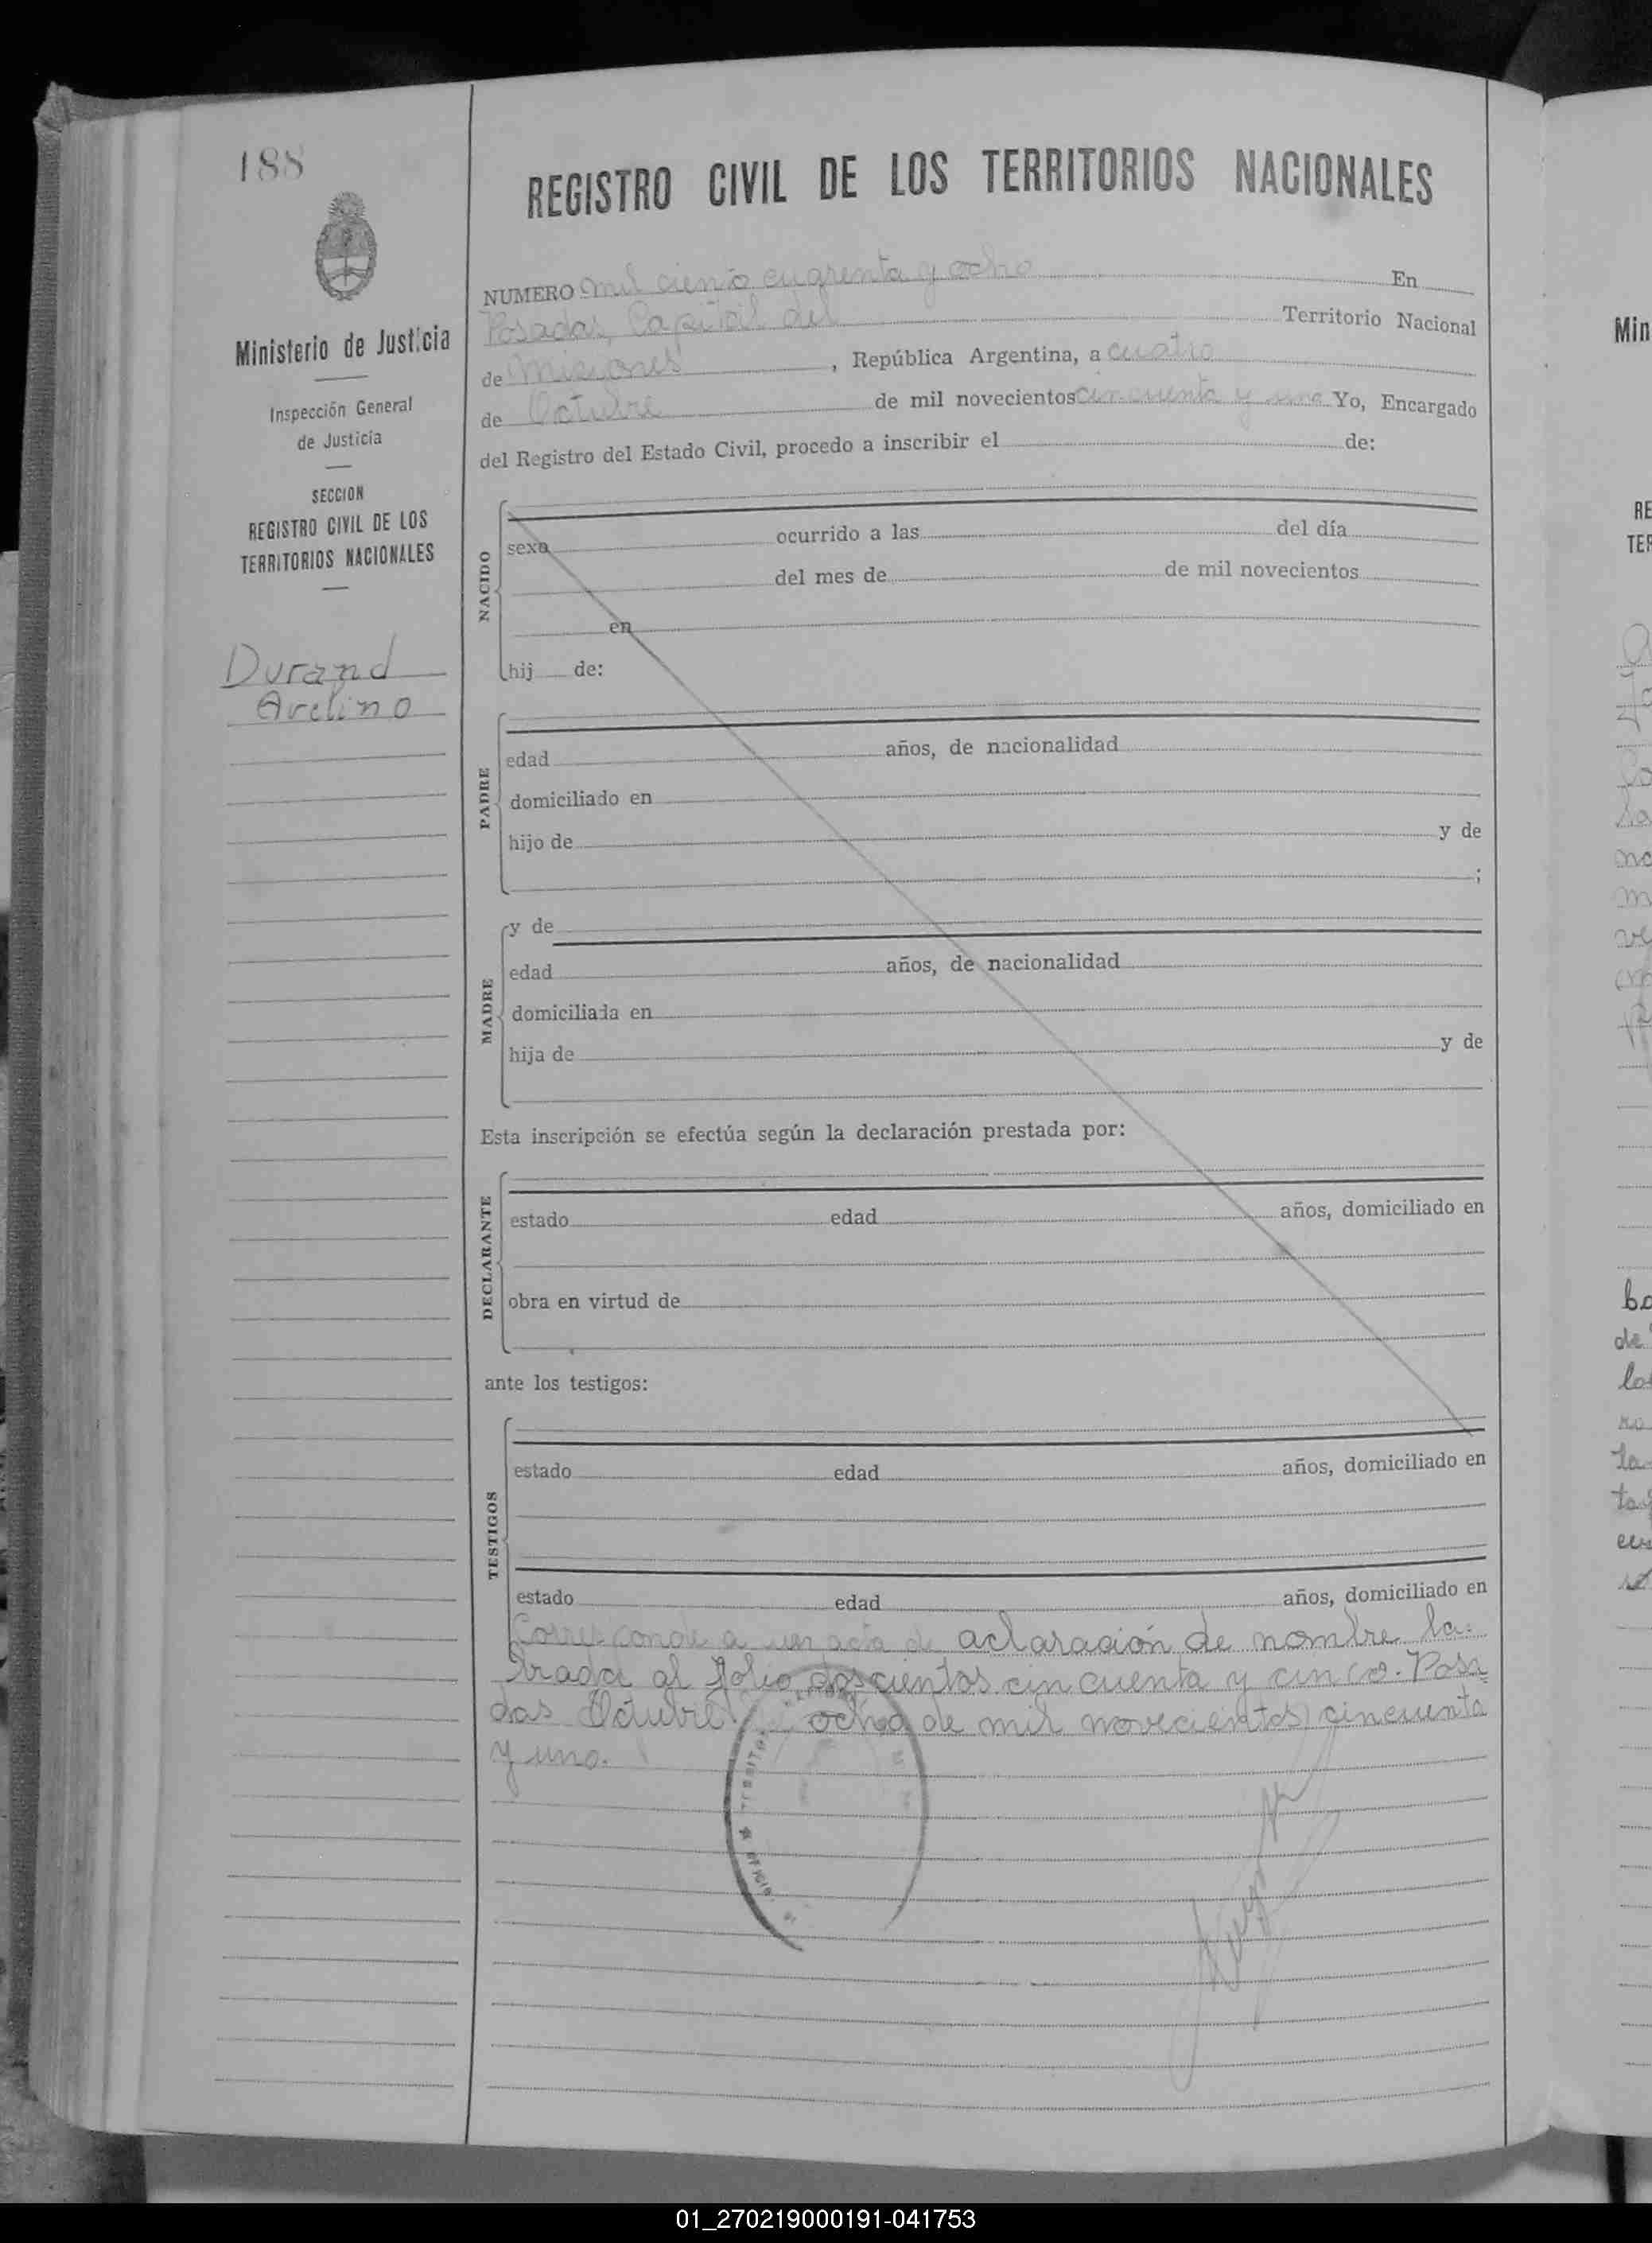 188
REGISTRO CIVIL DE LOS TERRITORIOS NACIONALES
Ministerio de Justicia
Inspección General
de Justicia
SECCION
REGISTRO CIVIL DE LOS
TERRITORIOS NACIONALES
Durand
Avelino
NUMERO mil ciento cuarenta y ocho En
Posadas, Capital del Territorio Nacional
de Misiones, República Argentina, a cuatro
de Octubre de mil novecientos cincuenta y uno Yo, Encargado
del Registro del Estado Civil, procedo a inscribir el de:
NACIDO
sexo ocurrido a las del día
del mes de de mil novecientos
en
hij de:
PADRE
edad años, de nacionalidad
domiciliado en
hijo de y de
;
MADRE
y de
edad años, de nacionalidad
domiciliada en
hija de y de
Esta inscripción se efectúa según la declaración prestada por:
DECLARANTE
estado edad años, domiciliado en
obra en virtud de
ante los testigos:
TESTIGOS
estado edad años, domiciliado en
estado edad años, domiciliado en
Corresponde a un acta de aclaración de nombre la-
brada al folio doscientos cincuenta y cinco. Posa-
das Octubre ocho de mil novecientos cincuenta
y uno.
Min
RE
TER
01_270219000191-041753